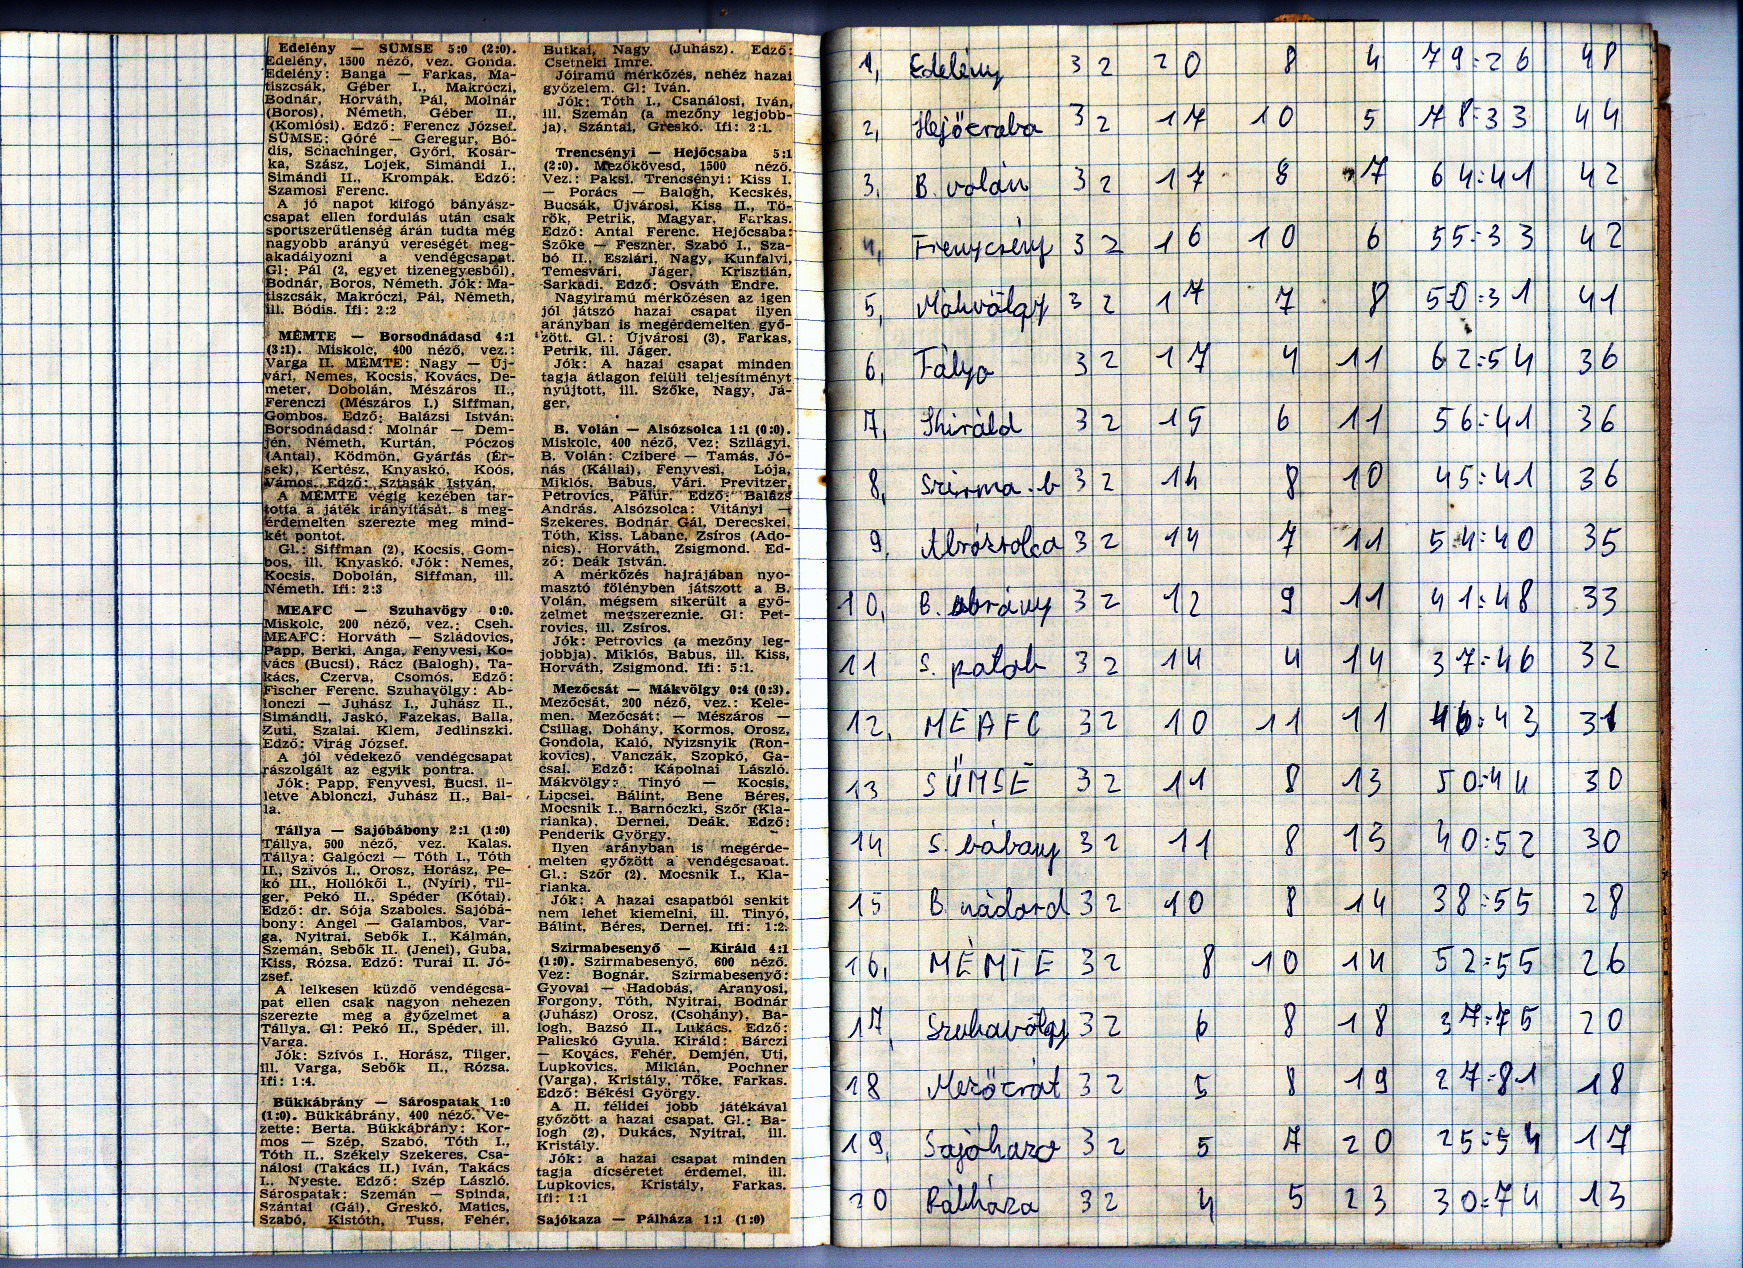 Edelény — SÜMSE 5:0 (2:0).
Edelény, 1500 néző, vez. Gonda.
Edelény: Banga — Farkas, Ma-
tiszcsák, Géber I., Makróczi,
Bodnár, Horváth, Pál, Molnár
(Boros), Németh, Géber II.,
(Komlósi). Edző: Ferencz József.
SÜMSE: Góré — Geregur, Bó-
dis, Schachinger, Győri, Kosár-
ka, Szász, Lojek, Simándi I.,
Simándi II., Krompák. Edző:
Szamosi Ferenc.
A jó napot kifogó bányász-
csapat ellen fordulás után csak
sportszerűtlenség árán tudta még
nagyobb arányú vereségét meg-
akadályozni a vendégcsapat.
Gl: Pál (2, egyet tizenegyesből),
Bodnár, Boros, Németh. Jók: Ma-
tiszcsák, Makróczi, Pál, Németh,
ill. Bódis. Ifi: 2:2
MÉMTE — Borsodnádasd 4:1
(3:1). Miskolc, 400 néző, vez.:
Varga II. MÉMTE: Nagy — Új-
vári, Nemes, Kocsis, Kovács, De-
meter, Dobolán, Mészáros II.,
Ferenczi (Mészáros I.) Siffman,
Gombos. Edző: Balázsi István.
Borsodnádasd: Molnár — Dem-
jén, Németh, Kurtán, Póczos
(Antal), Ködmön, Gyárfás (Ér-
sek), Kertész, Knyaskó, Koós,
Vámos. Edző: Sztasák István.
A MÉMTE végig kezében tar-
totta a játék irányítását, s meg-
érdemelten szerezte meg mind-
két pontot.
Gl.: Siffman (2), Kocsis, Gom-
bos, ill. Knyaskó. Jók: Nemes,
Kocsis, Dobolán, Siffman, ill.
Németh. Ifi: 2:3
MEAFC — Szuhavögy 0:0.
Miskolc, 200 néző, vez.: Cseh.
MEAFC: Horváth — Szládovics,
Papp, Berki, Anga, Fenyvesi, Ko-
vács (Bucsi), Rácz (Balogh), Ta-
kács, Czerva, Csomós. Edző:
Fischer Ferenc. Szuhavölgy: Ab-
lonczi — Juhász I., Juhász II.,
Simándli, Jaskó, Fazekas, Balla,
Zuti, Szalai, Klem, Jedlinszki.
Edző: Virág József.
A jól védekező vendégcsapat
rászolgált az egyik pontra.
Jók: Papp, Fenyvesi, Bucsi, il-
letve Ablonczi, Juhász II., Bal-
la.
Tállya — Sajóbábony 2:1 (1:0)
Tállya, 500 néző, vez. Kalas.
Tállya: Galgóczi — Tóth I., Tóth
II., Szívós I., Orosz, Horász, Pe-
kó III., Hollókői I., (Nyíri), Til-
ger, Pekó II., Spéder (Kótai).
Edző: dr. Sója Szabolcs. Sajóbá-
bony: Angel — Galambos, Var-
ga, Nyitrai, Sebők I., Kálmán,
Szemán, Sebők II. (Jenei), Guba,
Kiss, Rózsa. Edző: Turai II. Jó-
zsef.
A lelkesen küzdő vendégcsa-
pat ellen csak nagyon nehezen
szerezte meg a győzelmet a
Tállya. Gl: Pekó II., Spéder, ill.
Varga.
Jók: Szívós I., Horász, Tilger,
ill. Varga, Sebők II., Rózsa.
Ifi: 1:4.
Bükkábrány — Sárospatak 1:0
(1:0). Bükkábrány, 400 néző. Ve-
zette: Berta. Bükkábrány: Kor-
mos — Szép, Szabó, Tóth I.,
Tóth II., Székely Szekeres, Csa-
nálosi (Takács II.) Iván, Takács
I., Nyeste. Edző: Szép László.
Sárospatak: Szemán — Spinda,
Szántai (Gál), Greskó, Matics,
Szabó, Kistóth, Tuss, Fehér,
Butkai, Nagy (Juhász). Edző:
Csetneki Imre.
Jóiramú mérkőzés, nehéz hazai
győzelem. Gl: Iván.
Jók: Tóth I., Csanálosi, Iván,
ill. Szemán (a mezőny legjobb-
ja), Szántai, Greskó. Ifi: 2:1.
Trencsényi — Hejőcsaba 5:1
(2:0). Mezőkövesd, 1500 néző.
Vez.: Paksi. Trencsényi: Kiss I.
— Porács — Balogh, Kecskés,
Bucsák, Újvárosi, Kiss II., Tö-
rök, Petrik, Magyar, Farkas.
Edző: Antal Ferenc. Hejőcsaba:
Szőke — Feszner, Szabó I., Sza-
bó II., Eszlári, Nagy, Kunfalvi,
Temesvári, Jáger, Krisztián,
Sarkadi. Edző: Osváth Endre.
Nagyiramú mérkőzésen az igen
jól játszó hazai csapat ilyen
arányban is megérdemelten győ-
zött. Gl.: Újvárosi (3), Farkas,
Petrik, ill. Jáger.
Jók: A hazai csapat minden
tagja átlagon felüli teljesítményt
nyújtott, ill. Szőke, Nagy, Já-
ger.
B. Volán — Alsózsolca 1:1 (0:0).
Miskolc, 400 néző, Vez: Szilágyi.
B. Volán: Czibere — Tamás, Jó-
nás (Kállai), Fenyvesi, Lója,
Miklós, Babus, Vári, Previtzer,
Petrovics, Palur. Edző: Balázs
András. Alsózsolca: Vitányi —
Szekeres, Bodnár, Gál, Derecskei,
Tóth, Kiss, Lábanc, Zsíros (Ado-
nics), Horváth, Zsigmond. Ed-
ző: Deák István.
A mérkőzés hajrájában nyo-
masztó fölényben játszott a B.
Volán, mégsem sikerült a győ-
zelmet megszereznie. Gl: Pet-
rovics, ill. Zsíros.
Jók: Petrovics (a mezőny leg-
jobbja), Miklós, Babus, ill. Kiss,
Horváth, Zsigmond. Ifi: 5:1.
Mezőcsát — Mákvölgy 0:4 (0:3).
Mezőcsát, 200 néző, vez.: Kele-
men. Mezőcsát: — Mészáros —
Csillag, Dohány, Kormos, Orosz,
Gondola, Kaló, Nyizsnyik (Ron-
kovics), Vanczák, Szopkó, Ga-
csal. Edző: Kápolnai László.
Mákvölgy: Tinyó — Kocsis,
Lipcsei, Bálint, Bene Béres,
Mocsnik I., Barnóczki, Szőr (Kla-
rianka), Dernei, Deák. Edző:
Penderik György.
Ilyen arányban is megérde-
melten győzött a vendégcsapat.
Gl.: Szőr (2), Mocsnik I., Kla-
rianka.
Jók: A hazai csapatból senkit
nem lehet kiemelni, ill. Tinyó,
Bálint, Béres, Dernei. Ifi: 1:2.
Szirmabesenyő — Királd 4:1
(1:0). Szirmabesenyő, 600 néző.
Vez: Bognár. Szirmabesenyő:
Gyovai — Hadobás, Aranyosi,
Forgony, Tóth, Nyitrai, Bodnár
(Juhász) Orosz, (Csohány), Ba-
logh, Bazsó II., Lukács. Edző:
Palicskó Gyula. Királd: Bárczi
— Kovács, Fehér, Demjén, Uti,
Lupkovics, Miklán, Pochner
(Varga), Kristály, Tőke, Farkas.
Edző: Békési György.
A II. félidei jobb játékával
győzött a hazai csapat. Gl.: Ba-
logh (2), Dukács, Nyitrai, ill.
Kristály.
Jók: a hazai csapat minden
tagja dícséretet érdemel, ill.
Lupkovics, Kristály, Farkas.
Ifi: 1:1
Sajókaza — Pálháza 1:1 (1:0)
1, Edelény 32 20 8 4 79:26 48
2, Hejőcsaba 32 17 10 5 78:33 44
3, B. volán 32 17 8 7 64:41 42
4, Trenycsény 32 16 10 6 55:33 42
5, Mákvölgy 32 17 7 8 50:31 41
6, Tálya 32 17 4 11 62:54 36
7, Királd 32 15 6 11 56:41 36
8, Szirma.b 32 14 8 10 45:41 36
9, Alsózsolca 32 14 7 11 54:40 35
10, B. ábrány 32 12 9 11 41:48 33
11 S. patak 32 14 4 14 37:46 32
12, MEAFC 32 10 11 11 46:43 31
13 SÜMSE 32 11 8 13 50:44 30
14 S. bábony 32 11 8 13 40:52 30
15 B. nádasd 32 10 8 14 38:55 28
16, MÉMTE 32 8 10 14 52:55 26
17, Szuhavölgy 32 6 8 18 37:75 20
18 Mezőcsát 32 5 8 19 27:81 18
19, Sajókaza 32 5 7 20 25:54 17
20 Pálháza 32 4 5 23 30:74 13